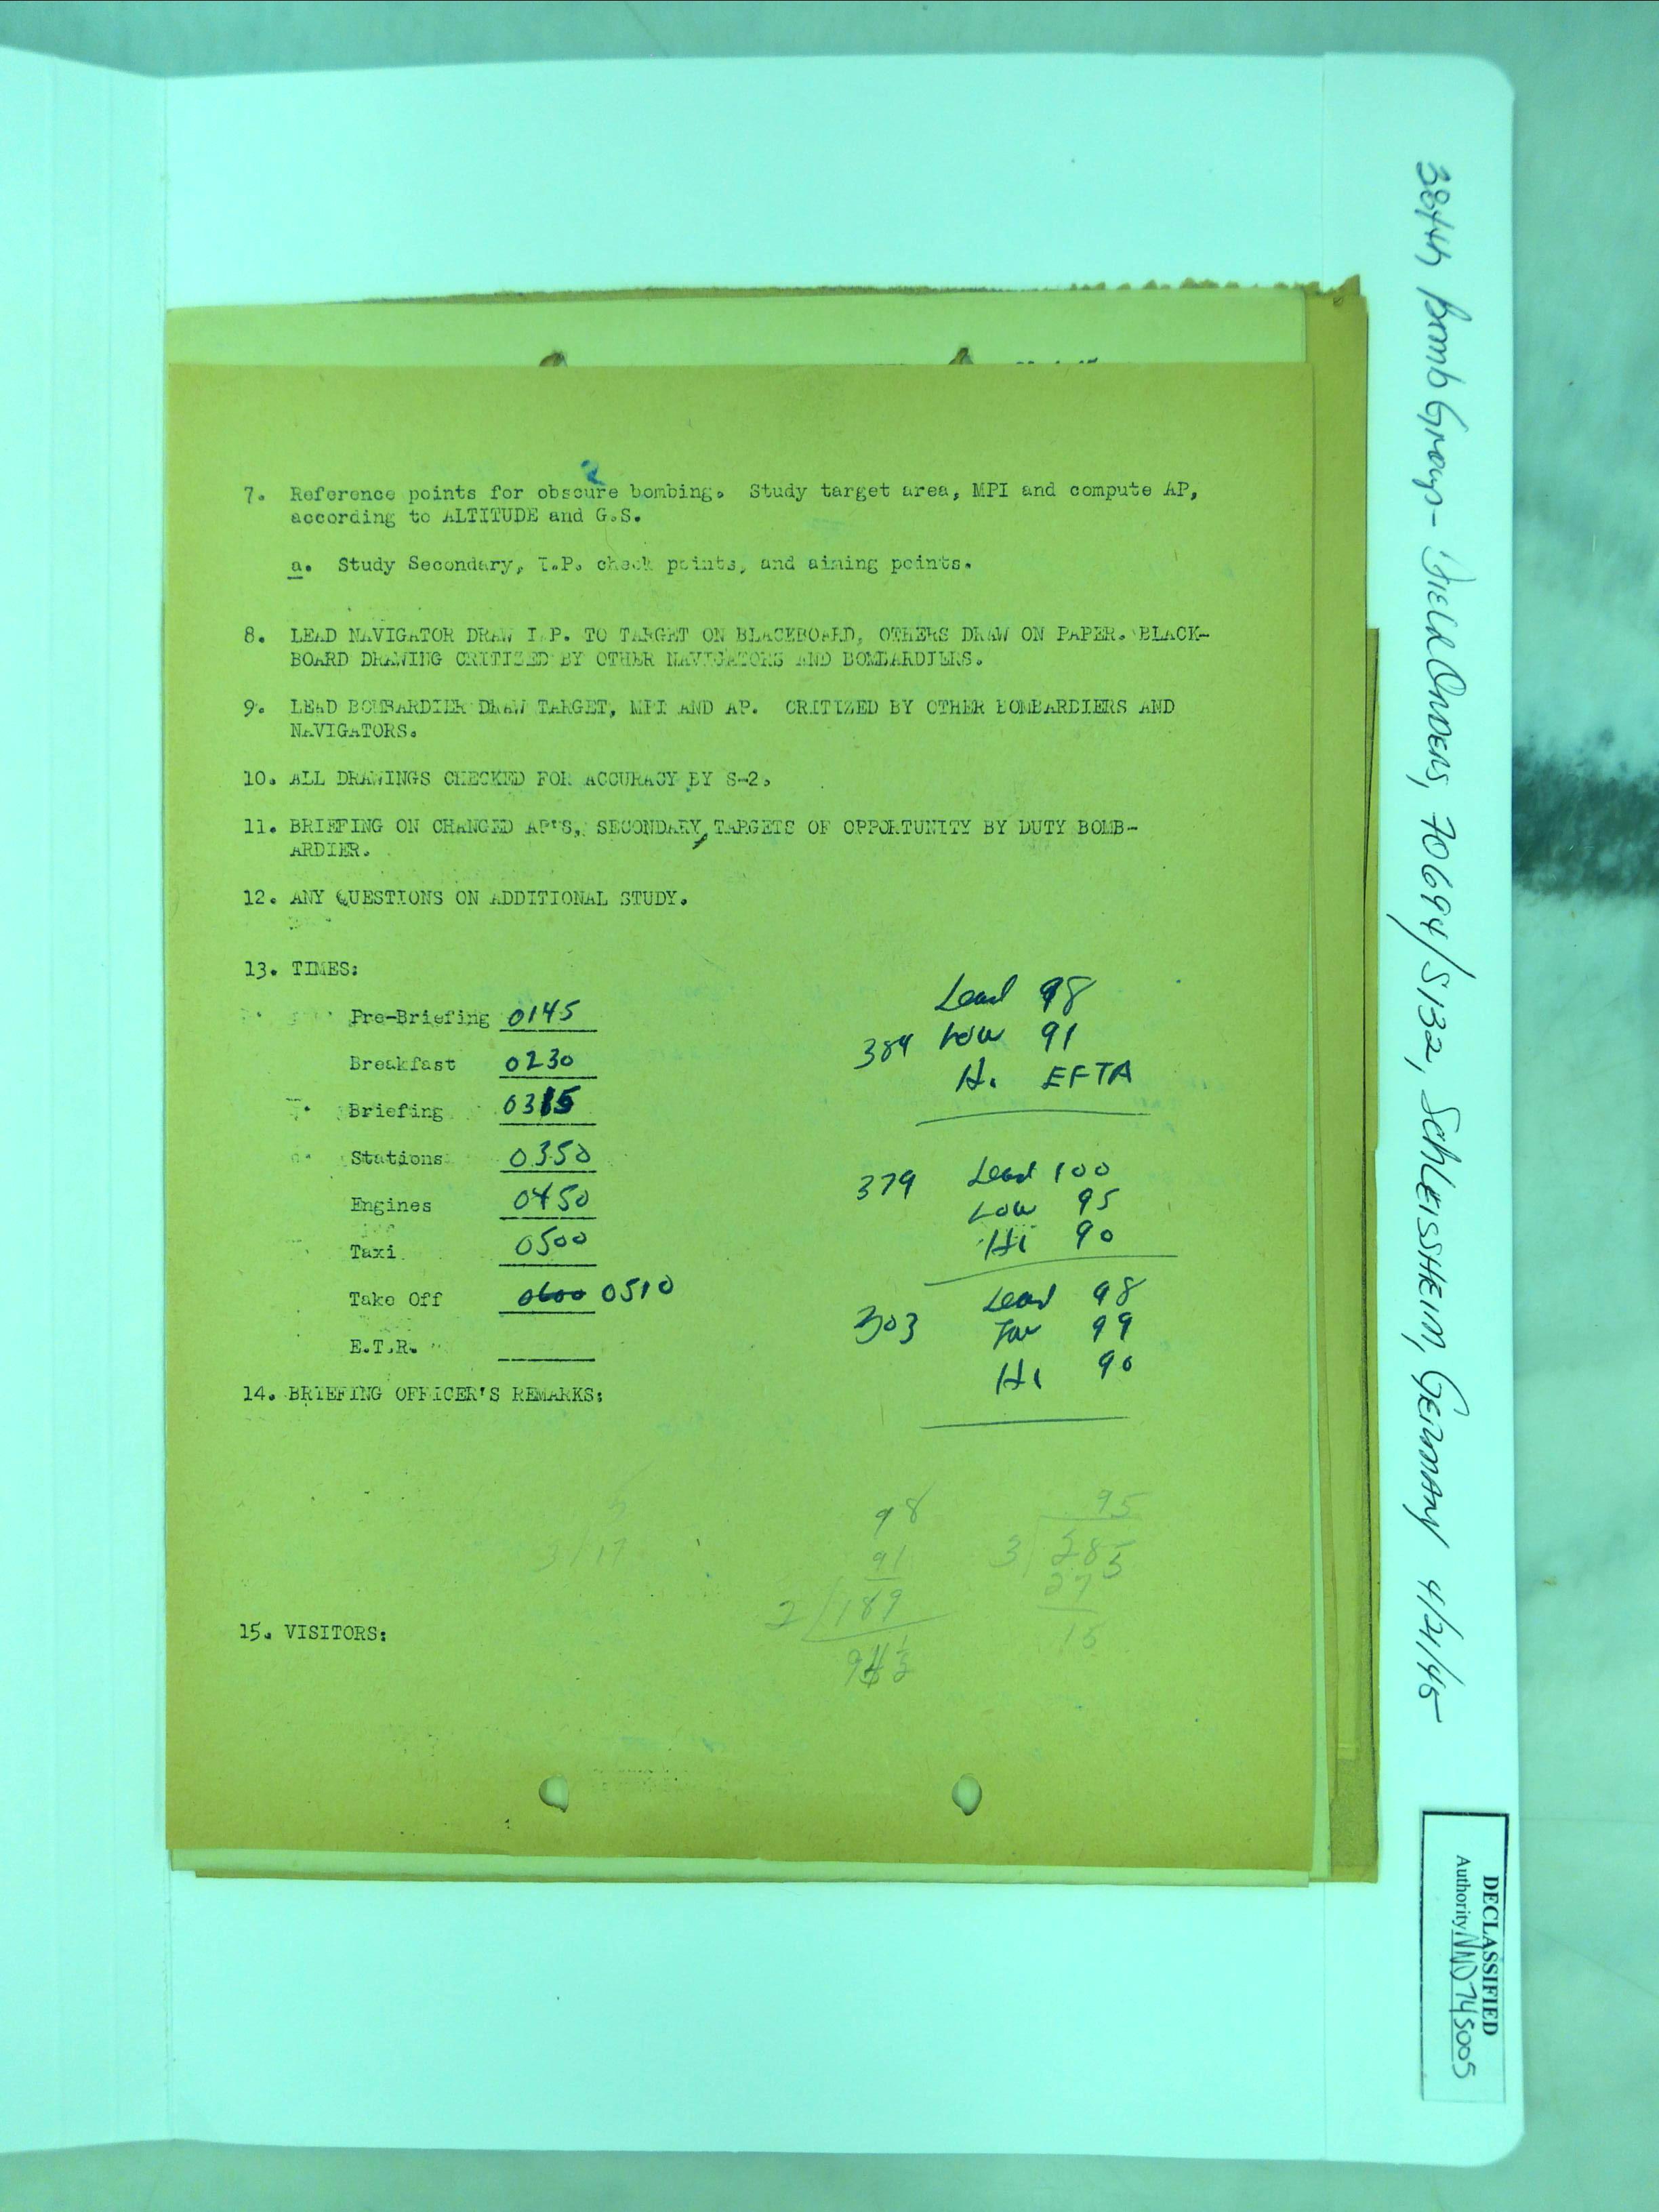 7. Reference points for obscure bombing. Study target area, MPI and compute AP,
according to ALTITUDE and G.S.
a. Study Secondary, I.P. check points, and aiming points.
8. LEAD NAVIGATOR DRAW I.P. TO TARGET ON BLACKBOARD, OTHERS DRAW ON PAPER. BLACK-
BOARD DRAWING CRITIZED BY OTHER NAVIGATORS AND BOMBARDIERS.
9. LEAD BOMBARDIER DRAW TARGET, MPI AND AP. CRITIZED BY OTHER BOMBARDIERS AND
NAVIGATORS.
10. ALL DRAWINGS CHECKED FOR ACCURACY BY S-2.
11. BRIEFING ON CHANGED AP'S, SECONDARY, TARGETS OF OPPORTUNITY BY DUTY BOMB-
ARDIER.
12. ANY QUESTIONS ON ADDITIONAL STUDY.
13. TIMES:
Pre-Briefing 0145
Breakfast 0230
Briefing 0315
Stations 0350
Engines 0450
Taxi 0500
Take Off 0600 0510
E.T.R.
Lead 98
384 Low 91
Hi EFTA
379 Lead 100
Low 95
Hi 90
303 Lead 98
Low 99
Hi 90
14. BRIEFING OFFICER'S REMARKS:
5
3/17
98
91
2/189
94 1/2
95
3/285
27
15
15. VISITORS:
384th Bomb Group - Field Orders, FO694/S132, SCHLEISSHEIM, GERMANY 4/21/45
DECLASSIFIED
Authority NND745005